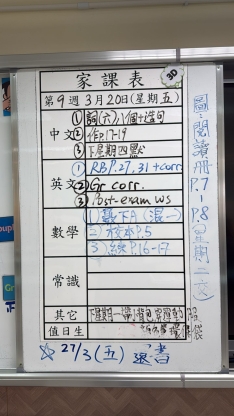 家課表
3D
第9週3月20日(星期五)
中文
①詞(六)八個+造句
②作17-19
③下星期四默
英文
①RB P.27, 31 + corr.
②Gr corr.
③Post-exam ws
數學
2)校本P.5
3)練P.16-17
常識
其它
值日生
圖:閱讀冊P.7-P.8(星期二交)
☆27/3(五)還書